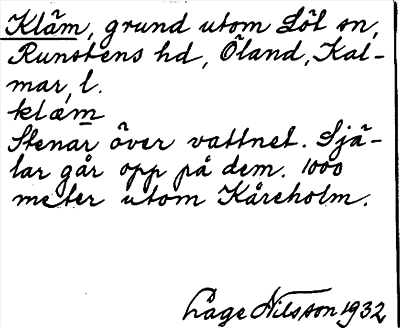 Kläm, grund utom Löt sn,
Runstens hd, Öland, Kal-
mar l.
klæm
Stenar över vattnet. Sjä-
lar går opp på dem. 1000
meter utom Kåreholm.
Låge Nilsson 1932